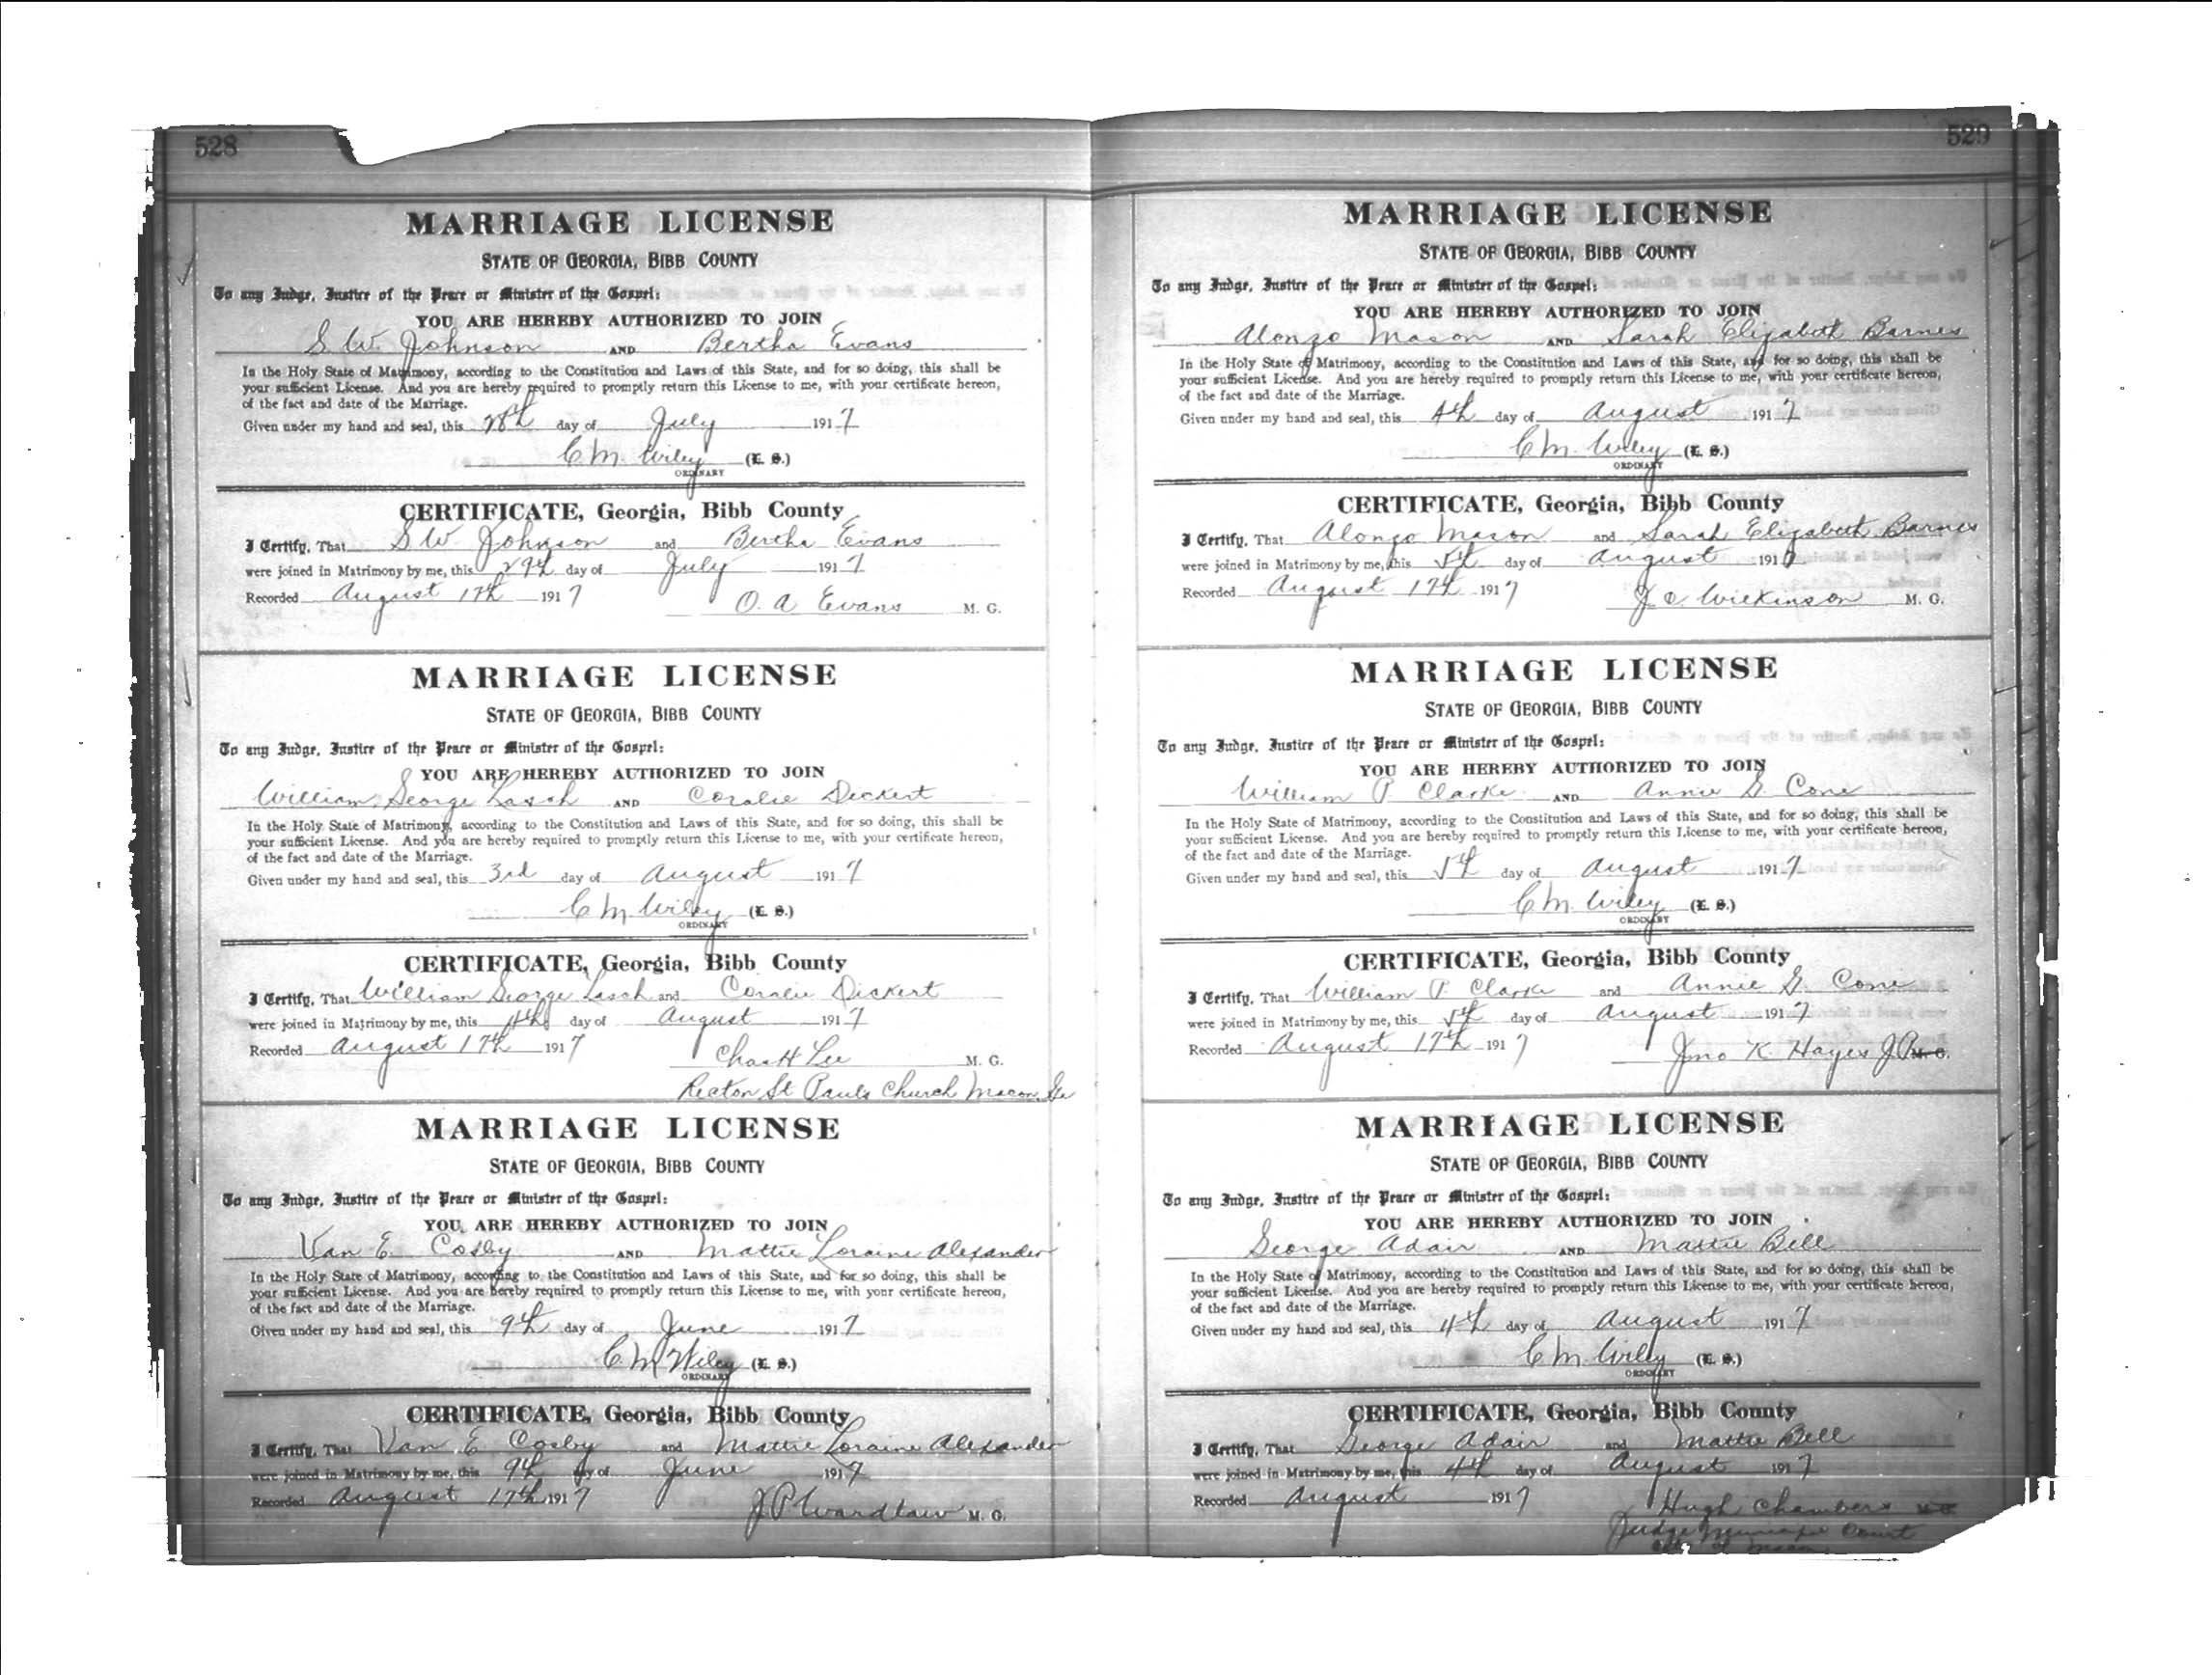 528
MARRIAGE LICENSE
STATE OF GEORGIA, BIBB COUNTY
To any Judge, Justice of the Peace or Minister of the Gospel:
YOU ARE HEREBY AUTHORIZED TO JOIN
S. W. Johnson AND Bertha Evans
In the Holy State of Matrimony, according to the Constitution and Laws of this State, and for so doing, this shall be
your sufficient License. And you are hereby required to promptly return this License to me, with your certificate hereon,
of the fact and date of the Marriage.
Given under my hand and seal, this 28th day of July 1917
C. M. Wiley (L. S.)
ORDINARY
CERTIFICATE, Georgia, Bibb County
I Certify, That S W Johnson and Bertha Evans
were joined in Matrimony by me, this 29th day of July 1917
Recorded August 17th 1917
O. A Evans M. G.
MARRIAGE LICENSE
STATE OF GEORGIA, BIBB COUNTY
To any Judge, Justice of the Peace or Minister of the Gospel:
YOU ARE HEREBY AUTHORIZED TO JOIN
William George Lasch AND Coralie Dickert
In the Holy State of Matrimony, according to the Constitution and Laws of this State, and for so doing, this shall be
your sufficient License. And you are hereby required to promptly return this License to me, with your certificate hereon,
of the fact and date of the Marriage.
Given under my hand and seal, this 3rd day of August 1917
C M Wiley (L. S.)
ORDINARY
CERTIFICATE, Georgia, Bibb County
I Certify, That William George Lasch and Coralie Dickert
were joined in Matrimony by me, this 4th day of August 1917
Recorded August 17th 1917
Chas H Lee M. G.
Rector St Paul's Church Macon, Ga
MARRIAGE LICENSE
STATE OF GEORGIA, BIBB COUNTY
To any Judge, Justice of the Peace or Minister of the Gospel:
YOU ARE HEREBY AUTHORIZED TO JOIN
Van E. Cosby AND Mattie Loraine Alexander
In the Holy State of Matrimony, according to the Constitution and Laws of this State, and for so doing, this shall be
your sufficient License. And you are hereby required to promptly return this License to me, with your certificate hereon,
of the fact and date of the Marriage.
Given under my hand and seal, this 9th day of June 1917
C. M. Wiley (L. S.)
ORDINARY
CERTIFICATE, Georgia, Bibb County
I Certify, That Van E Cosby and Mattie Loraine Alexander
were joined in Matrimony by me, this 9th day of June 1917
Recorded August 17th 1917
J. P. Wardlaw M. G.
529
MARRIAGE LICENSE
STATE OF GEORGIA, BIBB COUNTY
To any Judge, Justice of the Peace or Minister of the Gospel:
YOU ARE HEREBY AUTHORIZED TO JOIN
Alonzo Mason AND Sarah Elizabeth Barnes
In the Holy State of Matrimony, according to the Constitution and Laws of this State, and for so doing, this shall be
your sufficient License. And you are hereby required to promptly return this License to me, with your certificate hereon,
of the fact and date of the Marriage.
Given under my hand and seal, this 4th day of August 1917
C M. Wiley (L. S.)
ORDINARY
CERTIFICATE, Georgia, Bibb County
I Certify, That Alonzo Mason and Sarah Elizabeth Barnes
were joined in Matrimony by me, this 5th day of August 1917
Recorded August 17th 1917
J. O. Wilkinson M. G.
MARRIAGE LICENSE
STATE OF GEORGIA, BIBB COUNTY
To any Judge, Justice of the Peace or Minister of the Gospel:
YOU ARE HEREBY AUTHORIZED TO JOIN
William P Clarke AND Annie G. Cone
In the Holy State of Matrimony, according to the Constitution and Laws of this State, and for so doing, this shall be
your sufficient License. And you are hereby required to promptly return this License to me, with your certificate hereon,
of the fact and date of the Marriage.
Given under my hand and seal, this 5th day of August 1917
C M. Wiley (L. S.)
ORDINARY
CERTIFICATE, Georgia, Bibb County
I Certify, That William P. Clarke and Annie G. Cone
were joined in Matrimony by me, this 5th day of August 1917
Recorded August 17th 1917
Jno K. Hayes J. P. M. G.
MARRIAGE LICENSE
STATE OF GEORGIA, BIBB COUNTY
To any Judge, Justice of the Peace or Minister of the Gospel:
YOU ARE HEREBY AUTHORIZED TO JOIN
George Adair AND Mattie Bell
In the Holy State of Matrimony, according to the Constitution and Laws of this State, and for so doing, this shall be
your sufficient License. And you are hereby required to promptly return this License to me, with your certificate hereon,
of the fact and date of the Marriage.
Given under my hand and seal, this 4th day of August 1917
C M. Wiley (L. S.)
ORDINARY
CERTIFICATE, Georgia, Bibb County
I Certify, That George Adair and Mattie Bell
were joined in Matrimony by me, this 4th day of August 1917
Recorded August 1917
Hugh Chambers M. G.
Judge Municipal Court
City of Macon